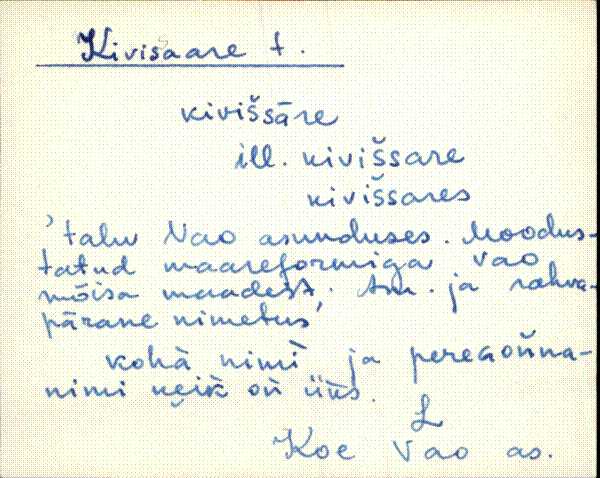 Kivisaare t.
kivišsāre
ill. kivišsare
kivišsares
'talu Vao asunduses. Moodus-
tatud maareformiga Vao
mõisa maadest. Am. ja rahva-
pärane nimetus'
kohà nimì ja pereKoňna-
nimi on üKs.
L
Koe Vao as.